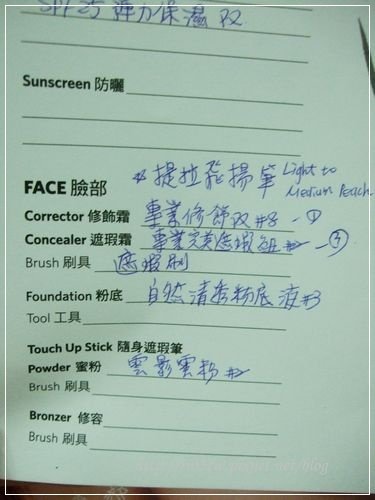 SPF25 彈力保濕双
Sunscreen 防曬
*提拉飛揚筆 Light to
Medium Peach
FACE 臉部
Corrector 修飾霜 專業修飾双#8 - ①
Concealer 遮瑕霜 專業完美遮瑕組#2 - ③
Brush 刷具 遮瑕刷
Foundation 粉底 自然清透粉底液#3
Tool 工具
Touch Up Stick 隨身遮瑕筆
Powder 蜜粉 雲影蜜粉#2
Brush 刷具
Bronzer 修容
Brush 刷具